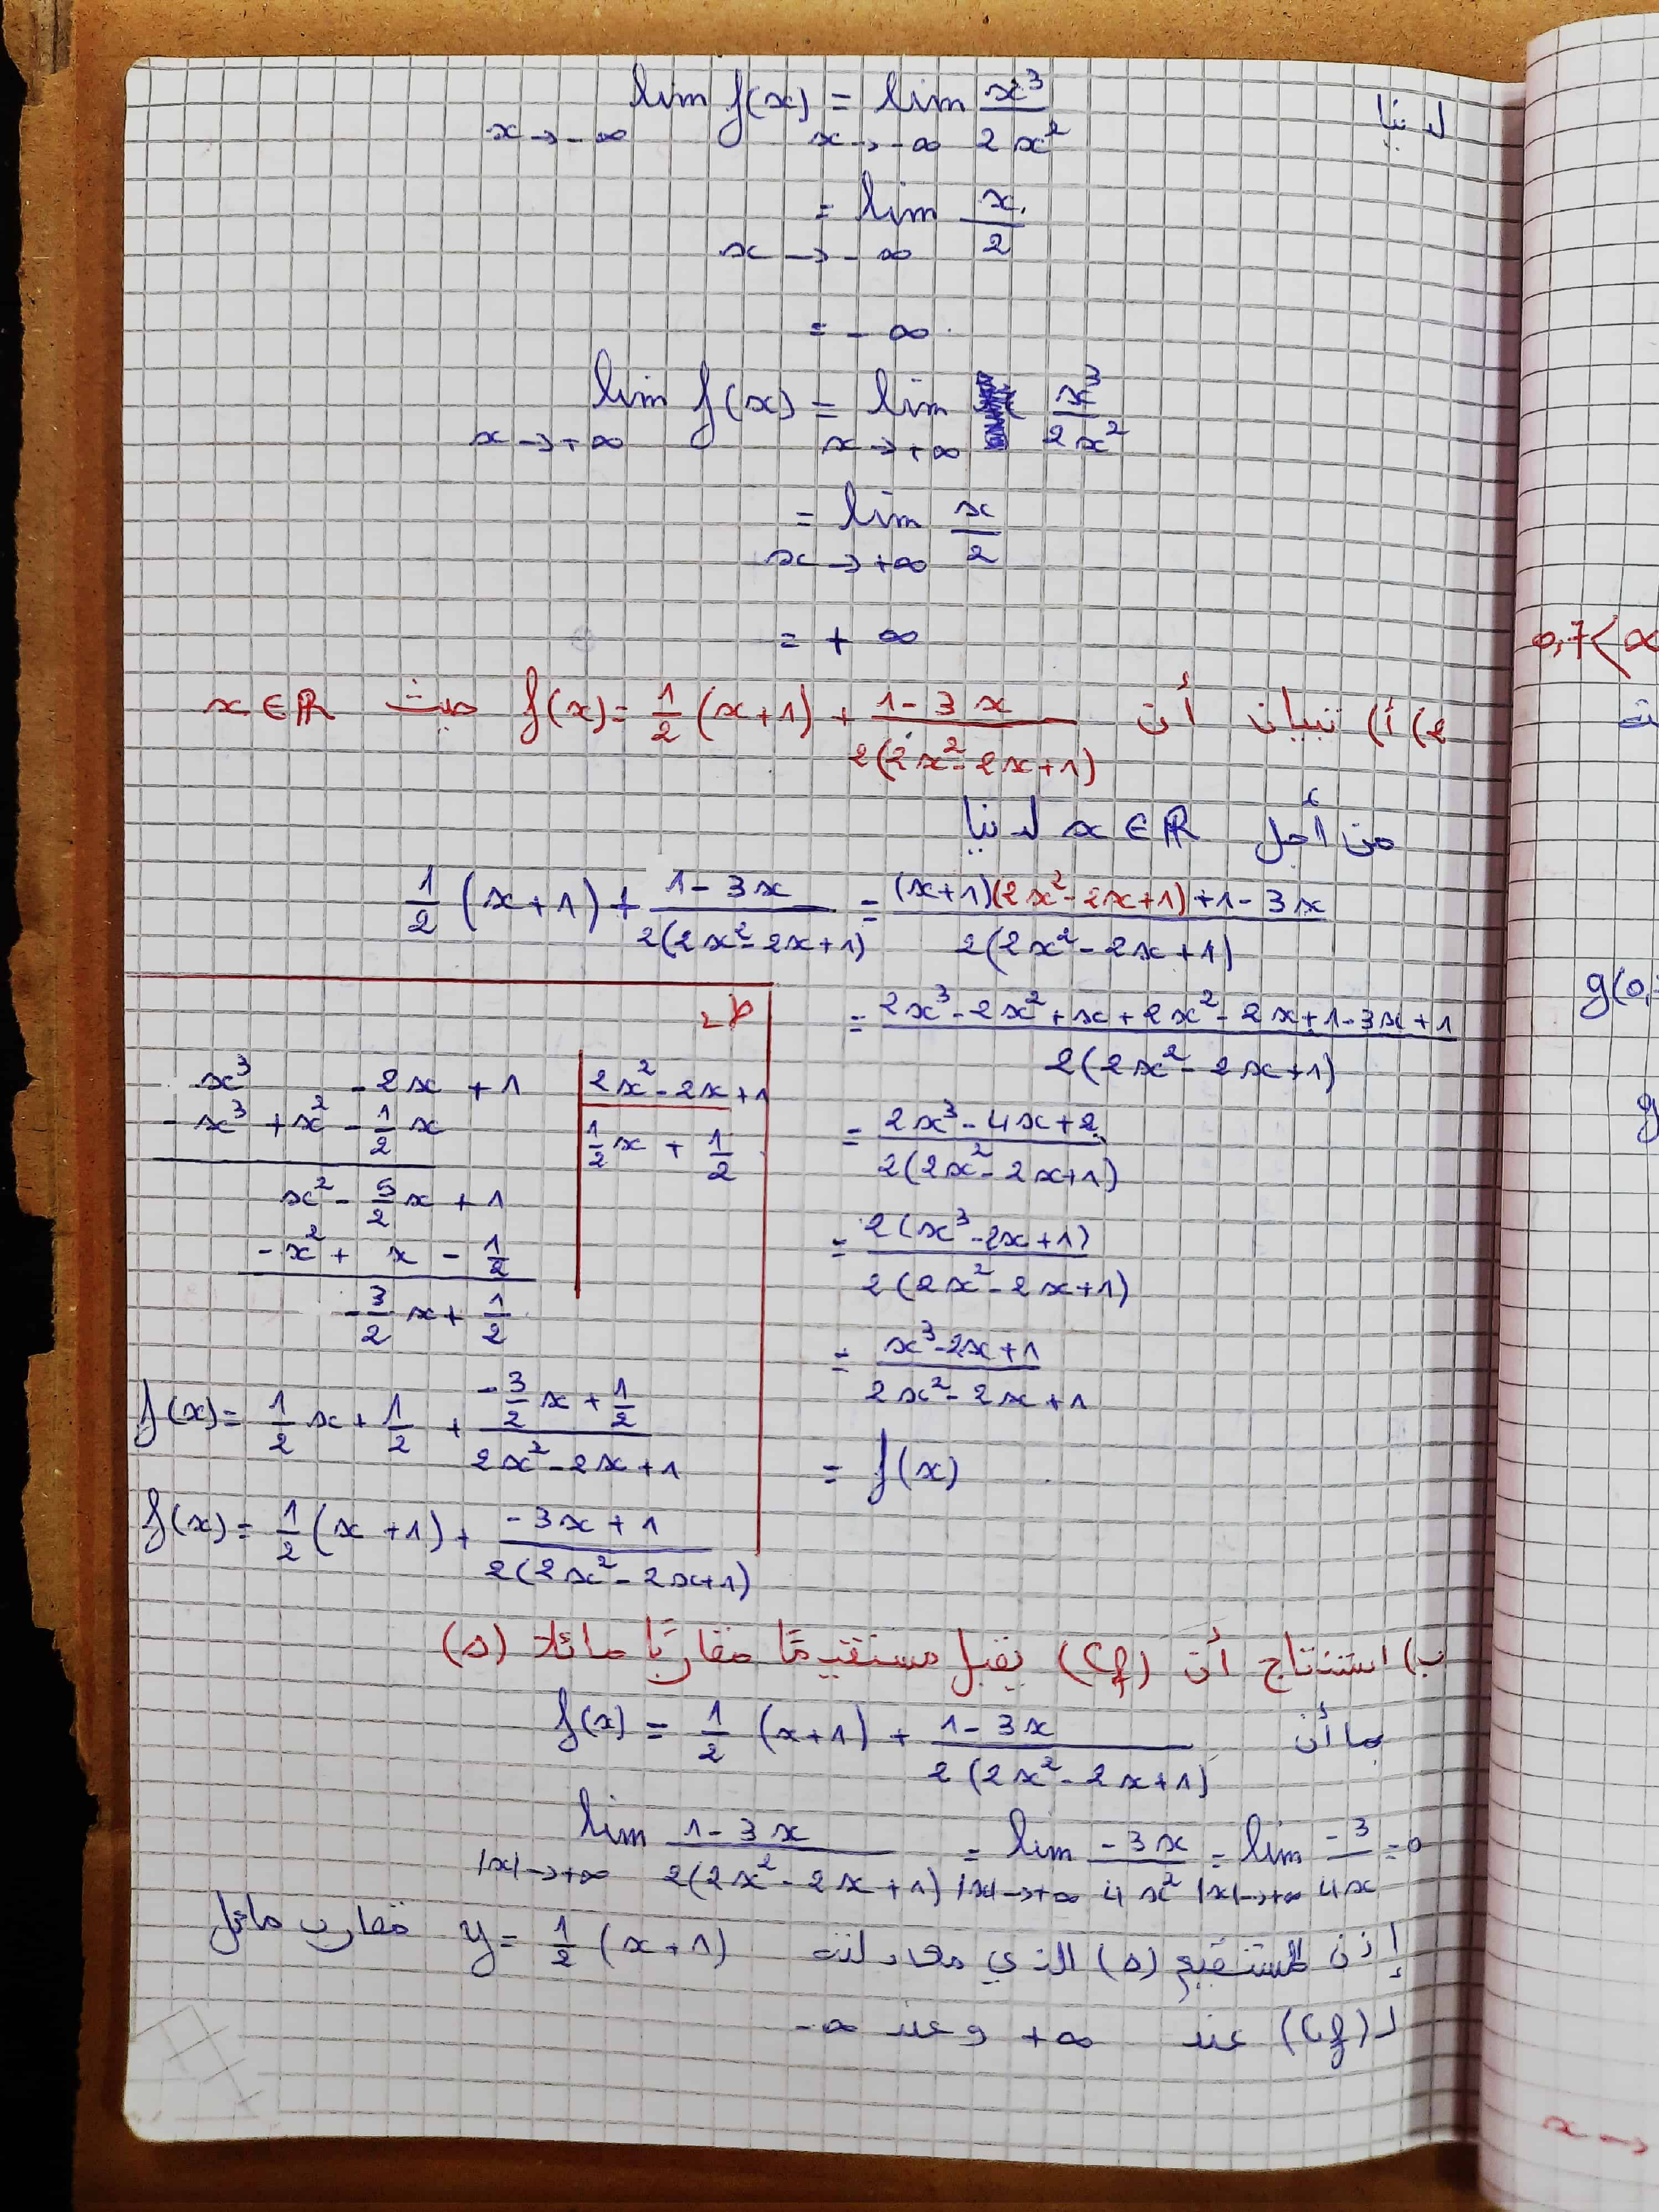 لدينا lim f(x) = lim x³/2x²
x→-∞ x→-∞
= lim x/2
x→-∞
= -∞
lim f(x) = lim x³/2x²
x→+∞ x→+∞
= lim x/2
x→+∞
= +∞
2) أ) تبيان أن f(x) = 1/2 (x+1) + (1-3x)/(2(2x²-2x+1)) حيث x∈ℝ
من أجل x∈ℝ لدينا
1/2 (x+1) + (1-3x)/(2(2x²-2x+1)) = ((x+1)(2x²-2x+1)+1-3x)/(2(2x²-2x+1))
= (2x³-2x²+x+2x²-2x+1-3x+1)/(2(2x²-2x+1))
= (2x³-4x+2)/(2(2x²-2x+1))
= 2(x³-2x+1)/(2(2x²-2x+1))
= (x³-2x+1)/(2x²-2x+1)
= f(x)
ط2
x³ -2x +1 | 2x²-2x+1
-x³ +x² -1/2 x | 1/2 x + 1/2
x² - 5/2 x + 1
-x² + x - 1/2
-3/2 x + 1/2
f(x) = 1/2 x + 1/2 + (-3/2 x + 1/2)/(2x²-2x+1)
f(x) = 1/2 (x+1) + (-3x+1)/(2(2x²-2x+1))
ب) استنتاج أن (Cf) يقبل مستقيمًا مقاربًا مائلا (Δ)
بما أن f(x) = 1/2 (x+1) + (1-3x)/(2(2x²-2x+1))
lim (1-3x)/(2(2x²-2x+1)) = lim -3x/4x² = lim -3/4x = 0
|x|→+∞ |x|→+∞ |x|→+∞
إذن المستقيم (Δ) الذي معادلته y = 1/2 (x+1) مقارب مائل
لـ (Cf) عند +∞ وعند -∞
0,7<
g(0,
g
x→